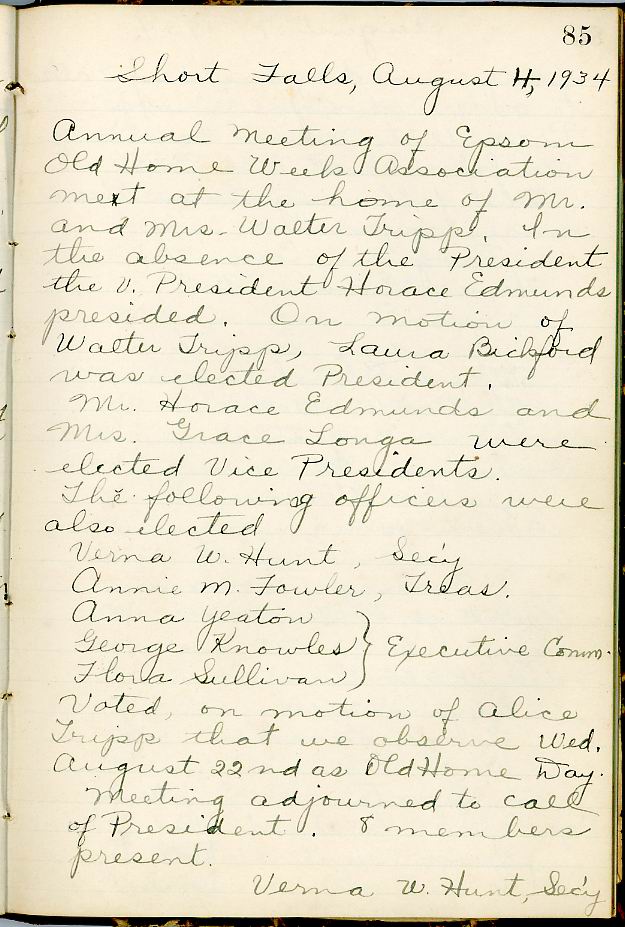 85
Short Falls, August 4, 1934
Annual Meeting of Epsom
Old Home Week Association
meet at the home of Mr.
and Mrs. Walter Tripp. In
the absence of the President
the V. President Horace Edmunds
presided. On motion of
Walter Tripp, Laura Bickford
was elected President.
Mr. Horace Edmunds and
Mrs. Grace Longa were
elected Vice Presidents.
The following officers were
also elected
Verna W. Hunt, Sec'y
Annie M. Fowler, Treas.
Anna Yeaton
George Knowles } Executive Comm.
Flora Sullivan
Voted, on motion of Alice
Tripp that we observe Wed.
August 22nd as Old Home Day.
Meeting adjourned to call
of President. 8 members
present.
Verna W. Hunt, Sec'y